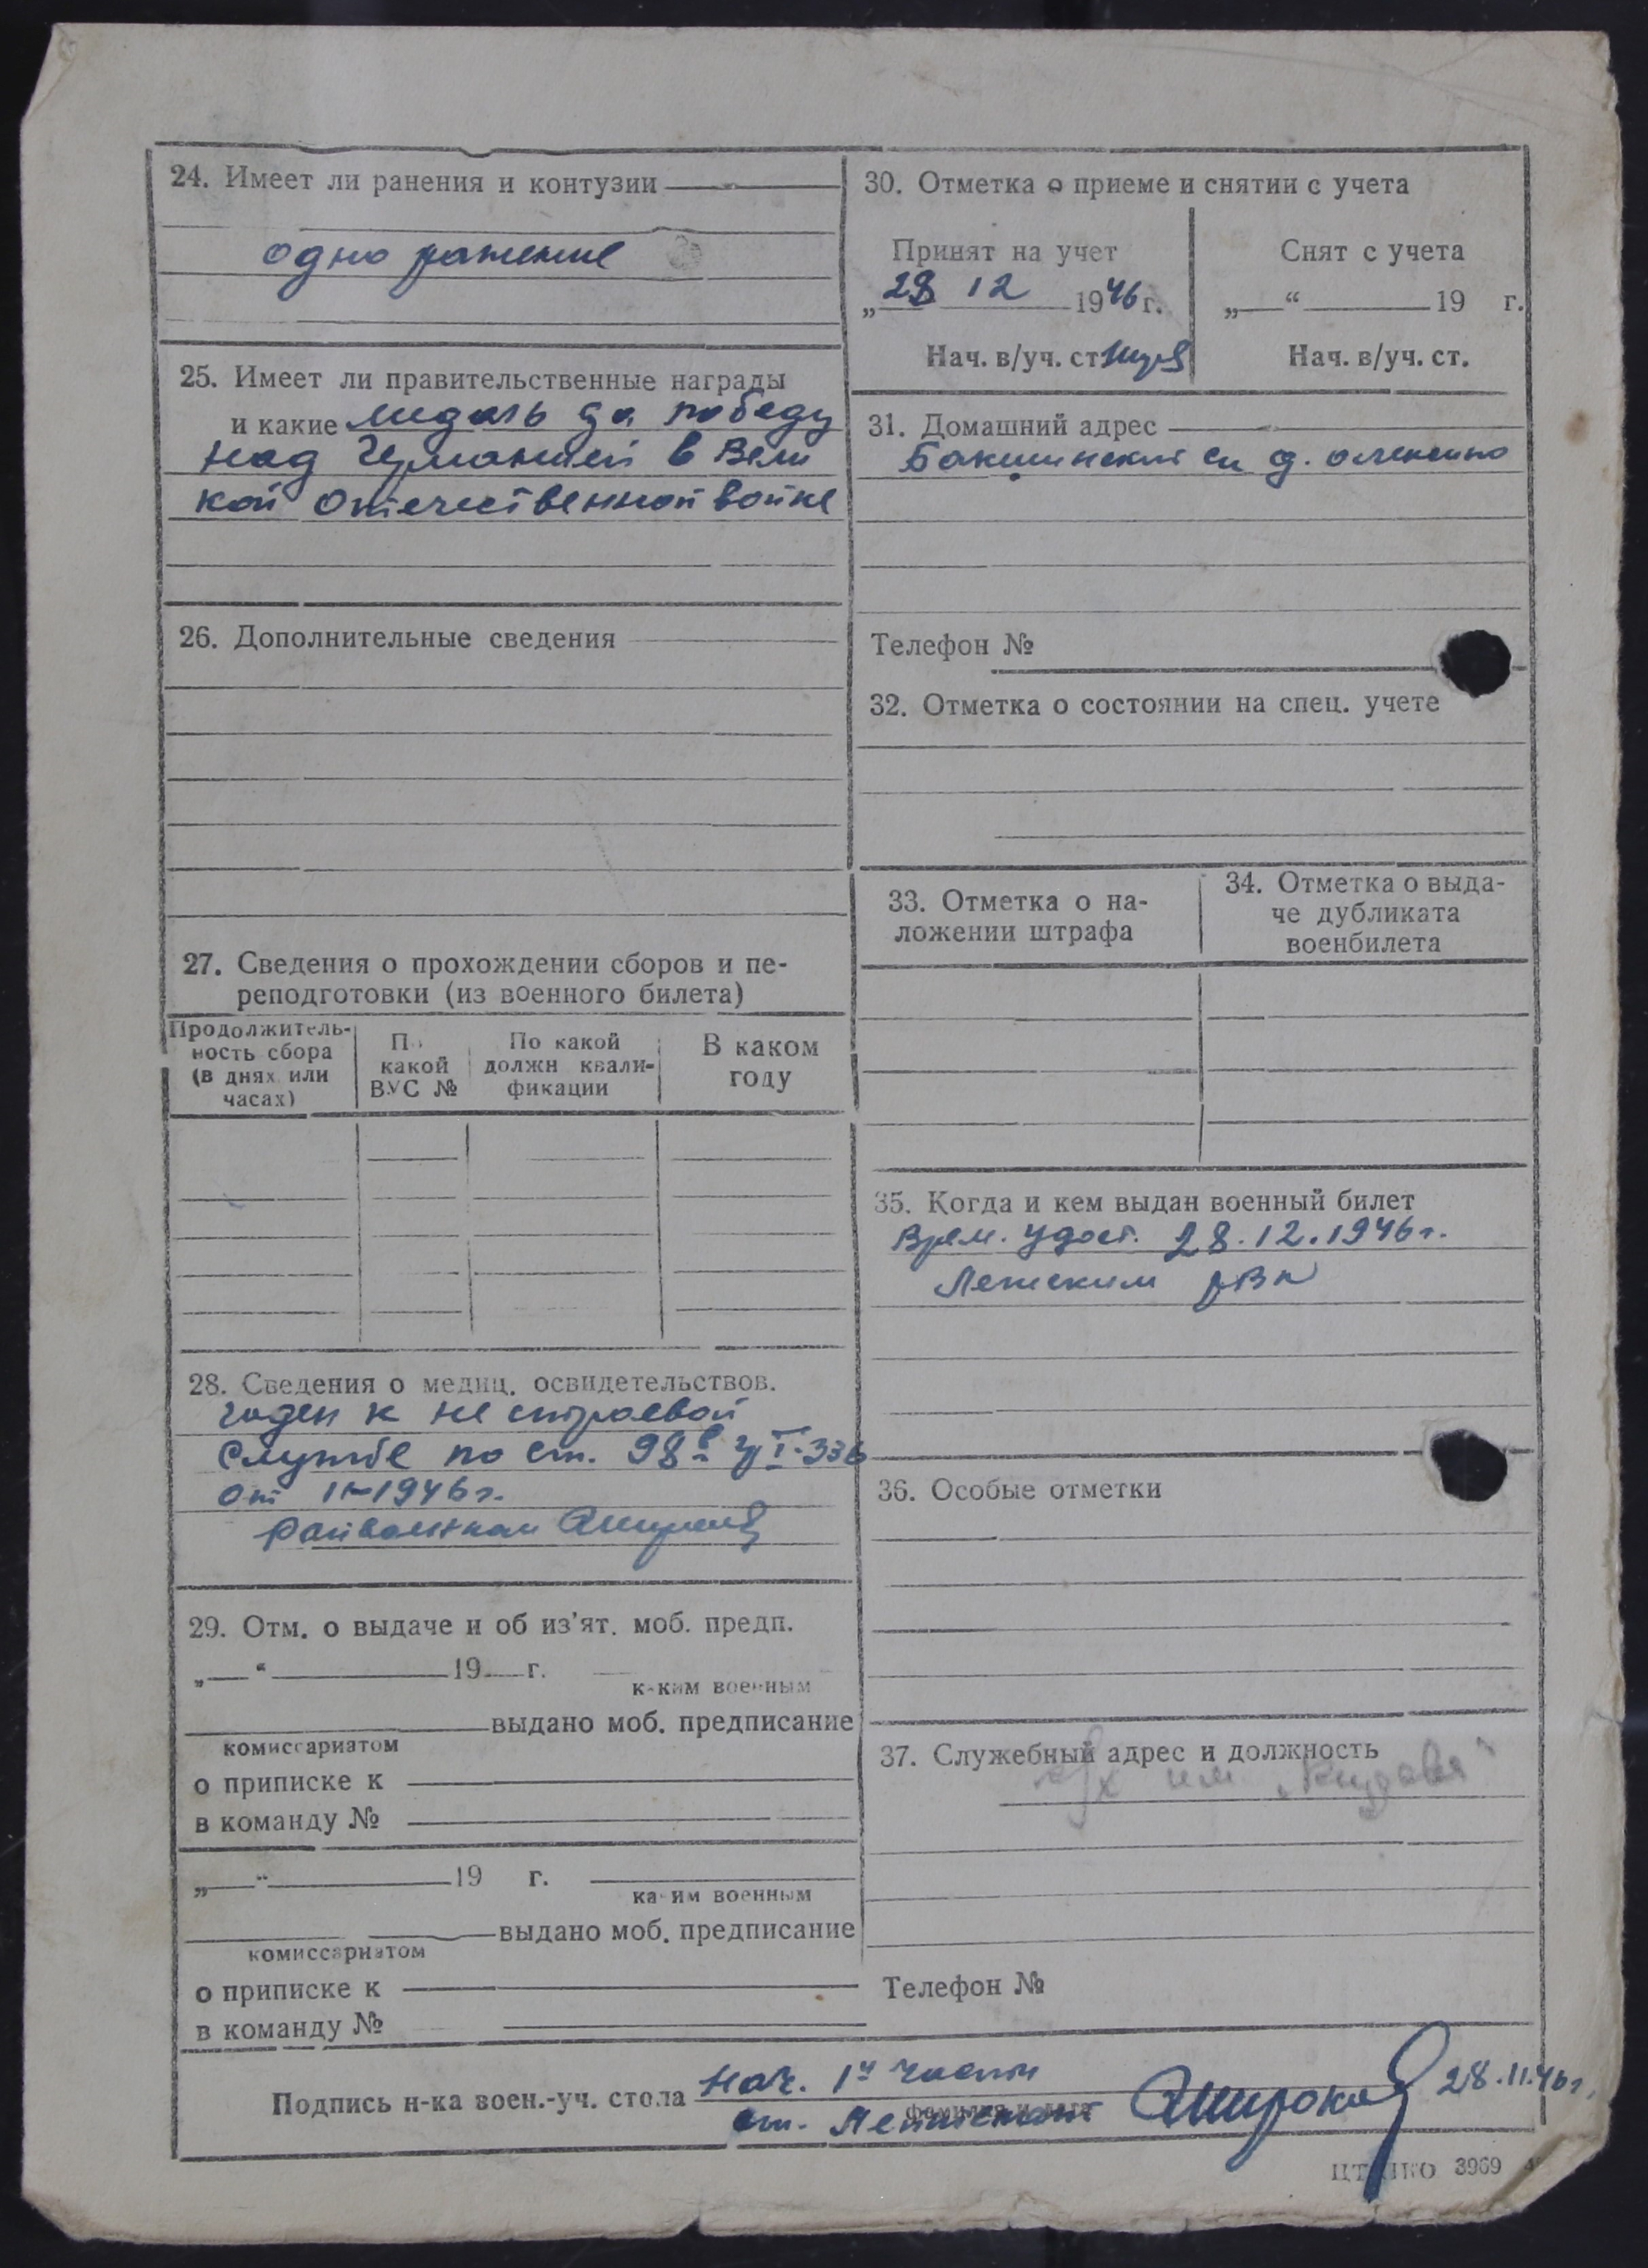 24. Имеет ли ранения и контузии
одно ранение
25. Имеет ли правительственные награды
и какие медаль За победу
над Германией в Вели
кой Отечественной войне
26. Дополнительные сведения
27. Сведения о прохождении сборов и пе-
реподготовки (из военного билета)
Продолжитель-
ность сбора
(в днях или
часах)
По
какой
ВУС №
По какой
должн квали-
фикации
В каком
году
28. Сведения о медиц. освидетельствов.
годен к не строевой
службе по ст. 98
от 1946 г.
Райвоенком
29. Отм. о выдаче и об из'ят. моб. предп.
„ “ 19 г.
каким военным
выдано моб. предписание
комиссариатом
о приписке к
в команду №
„ “ 19 г.
каким военным
выдано моб. предписание
комиссариатом
о приписке к
в команду №
30. Отметка о приеме и снятии с учета
Принят на учет
„28 12 1946 г.
Нач. в/уч. ст
Снят с учета
„ “ 19 г.
Нач. в/уч. ст.
31. Домашний адрес
Бакшинский д.
Телефон №
32. Отметка о состоянии на спец. учете
33. Отметка о на-
ложении штрафа
34. Отметка о выда-
че дубликата
военбилета
35. Когда и кем выдан военный билет
Врем. удост. 28.12.1946 г.
РВК
36. Особые отметки
37. Служебный адрес и должность
им
Телефон №
Подпись н-ка воен.-уч. стола Нач. 1й части
фамилия и дата
ст. Лейтенант Широков 28.11.46 г.
3969